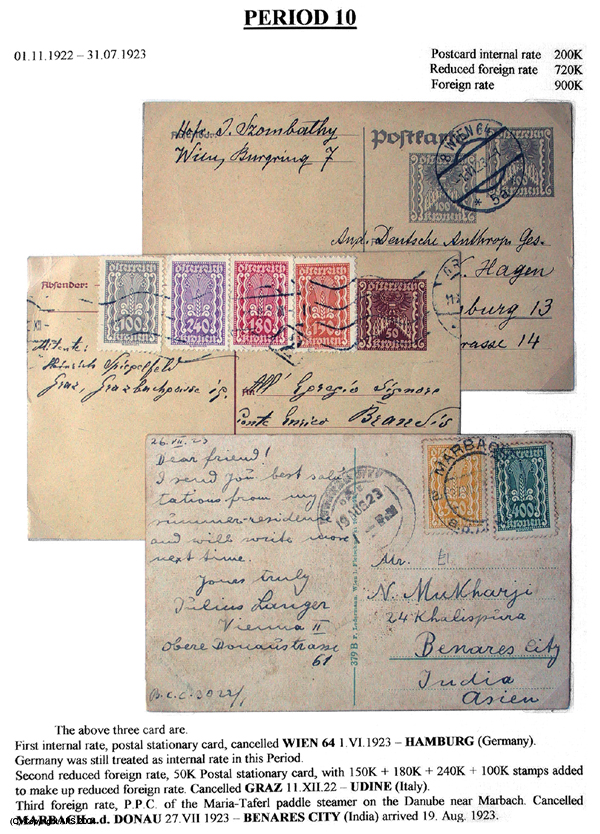 PERIOD 10
01.11.1922 – 31.07.1923
Postcard internal rate 200K
Reduced foreign rate 720K
Foreign rate 900K
Hofr. J. Szombathy
Wien, Burgring 7
Postkarte
8 WIEN 64
österreich
100
Kronen
And. Deutsche Anthrop. Ges.
Hagen
burg 13
strasse 14
Absender:
österreich österreich österreich österreich
100 240 180
50
Kronen
Graz,
All' Egregio Signore
Conte Enrico Brandis
26. VII. 23
Dear friend!
I send you best salu-
tations from my
summer-residen
and will write more
next time.
Yours truly
Julius Langer
Vienna II
Obere Donaustrasse
61
B.c.c.
19 AUG. 23
379 B
MARBACH
400
Mr.
N. Mukharji
24 Khalispura
Benares City
India
Asien
The above three card are.
First internal rate, postal stationary card, cancelled WIEN 64 1.VI.1923 – HAMBURG (Germany).
Germany was still treated as internal rate in this Period.
Second reduced foreign rate, 50K Postal stationary card, with 150K + 180K + 240K + 100K stamps added
to make up reduced foreign rate. Cancelled GRAZ 11.XII.22 – UDINE (Italy).
Third foreign rate, P.P.C. of the Maria-Taferl paddle steamer on the Danube near Marbach. Cancelled
MARBACH a.d. DONAU 27.VII 1923 – BENARES CITY (India) arrived 19. Aug. 1923.